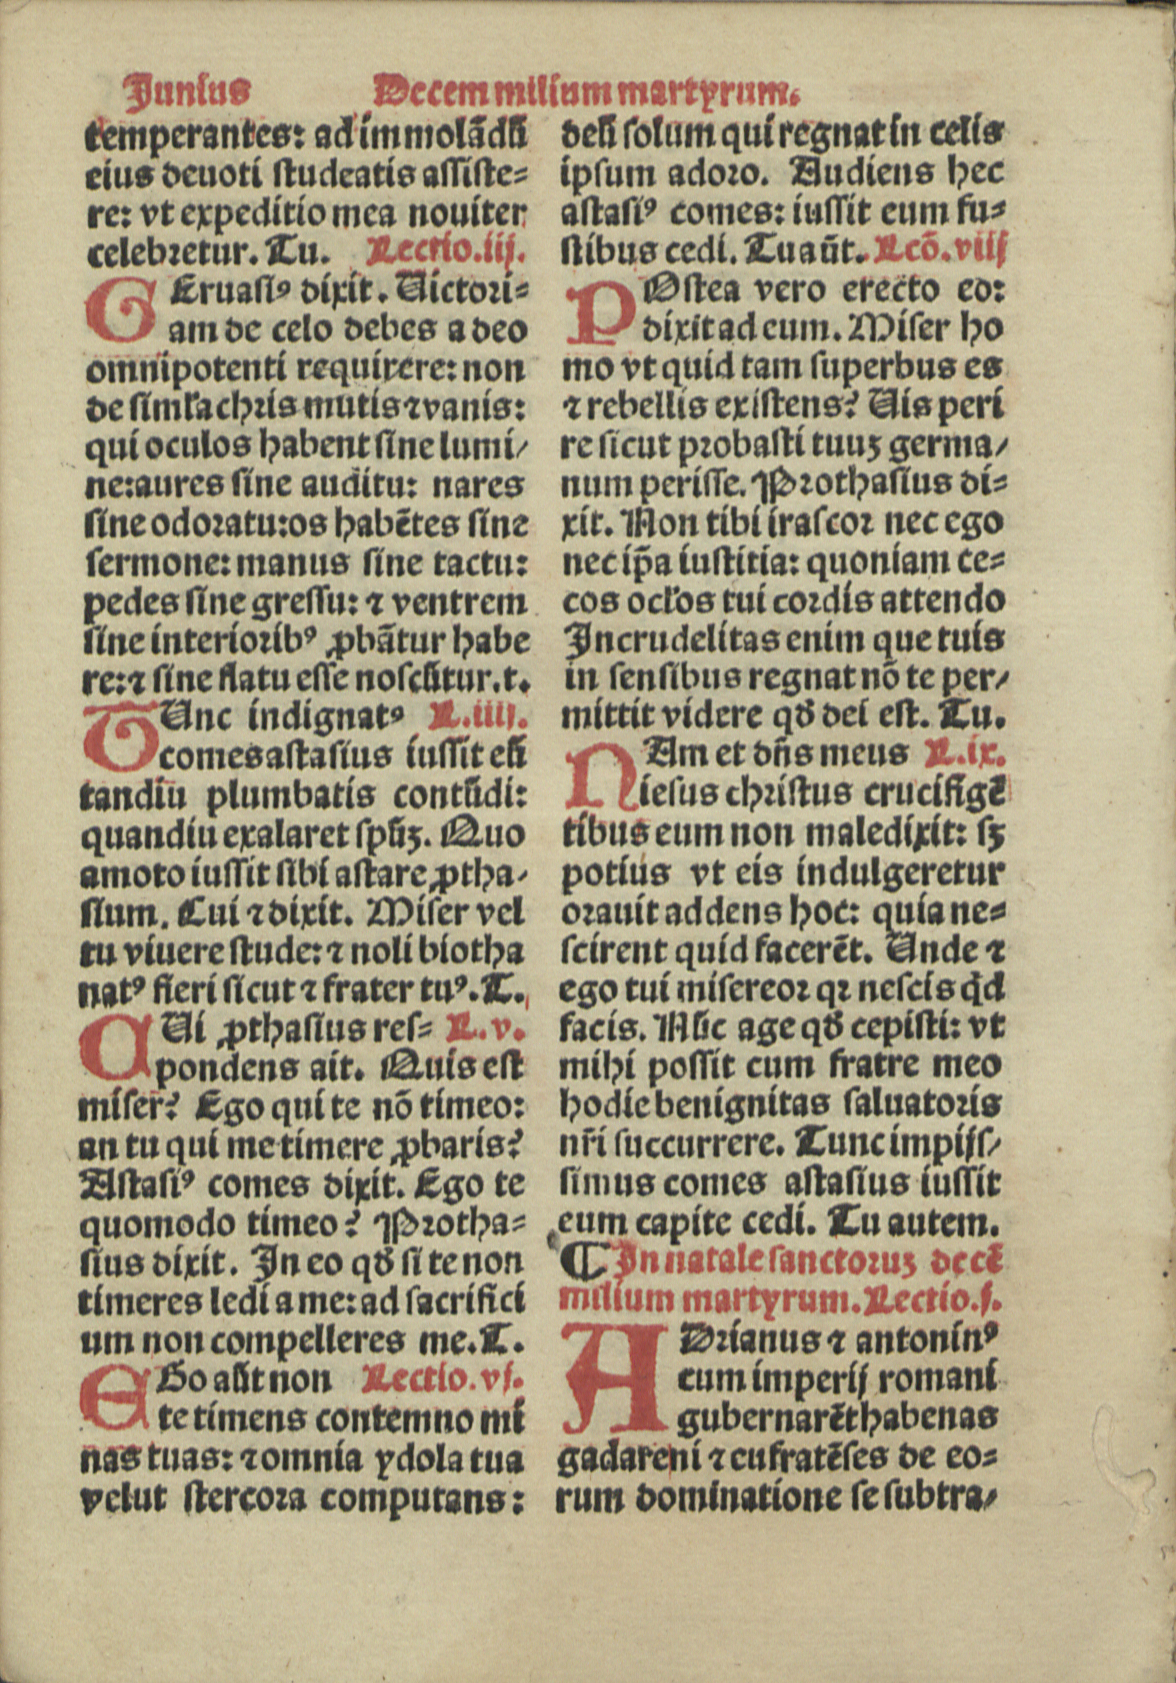 Junius Decem milium martyrum.
temperantes: ad immolādū
eius deuoti studeatis assiste=
re: vt expeditio mea nouiter
celebretur. Tu. Lectio.iij.
GEruasiꝰ dixit. Uictori=
am de celo debes a deo
omnipotenti requirere: non
de simłachris mutis ⁊ vanis:
qui oculos habent sine lumi/
ne: aures sine auditu: nares
sine odoratu: os habētes sine
sermone: manus sine tactu:
pedes sine gressu: ⁊ ventrem
sine interioribꝰ ꝓbātur habe
re: ⁊ sine flatu esse noscūtur. t.
TUnc indignatꝰ L.iiij.
comes astasius iussit eū
tandiu plumbatis contūdi:
quandiu exalaret spūꝫ. Quo
amoto iussit sibi astare ꝓtha/
sium. Cui ⁊ dixit. Miser vel
tu viuere stude: ⁊ noli biotha
natꝰ fieri sicut ⁊ frater tuꝰ. T.
CUi ꝓthasius res= L.v.
pondens ait. Quis est
miser? Ego qui te nō timeo:
an tu qui me timere ꝓbaris?
Astasiꝰ comes dixit. Ego te
quomodo timeo? Protha=
sius dixit. In eo qđ si te non
timeres ledi a me: ad sacrifici
um non compelleres me. T.
EGo aūt non Lectio.vj.
te timens contemno mi
nas tuas: ⁊ omnia ydola tua
velut stercora computans:
deū solum qui regnat in celis
ipsum adoro. Audiens hec
astasiꝰ comes: iussit eum fu=
stibus cedi. Tu aūt. Lcō.viij
POstea vero erecto eo:
dixit ad eum. Miser ho
mo vt quid tam superbus es
⁊ rebellis existens? Uis peri
re sicut probasti tuuꝫ germa/
num perisse. Prothasius di=
xit. Non tibi irascor nec ego
nec ip̄a iustitia: quoniam ce=
cos ocłos tui cordis attendo
Incrudelitas enim que tuis
in sensibus regnat nō te per/
mittit videre qđ dei est. Tu.
NAm et dn̄s meus L.ix.
iesus christus crucifigē
tibus eum non maledixit: sꝫ
potius vt eis indulgeretur
orauit addens hoc: quia ne=
scirent quid facerēt. Unde ⁊
ego tui misereor qꝛ nescis qd̄
facis. Nūc age qđ cepisti: vt
mihi possit cum fratre meo
hodie benignitas saluatoris
nr̄i succurrere. Tunc impijs/
simus comes astasius iussit
eum capite cedi. Tu autem.
¶ In natale sanctoruꝫ decē
milium martyrum. Lectio.j.
ADrianus ⁊ antoninꝰ
cum imperij romani
gubernarēt habenas
gadareni ⁊ eufratēses de eo=
rum dominatione se subtra/